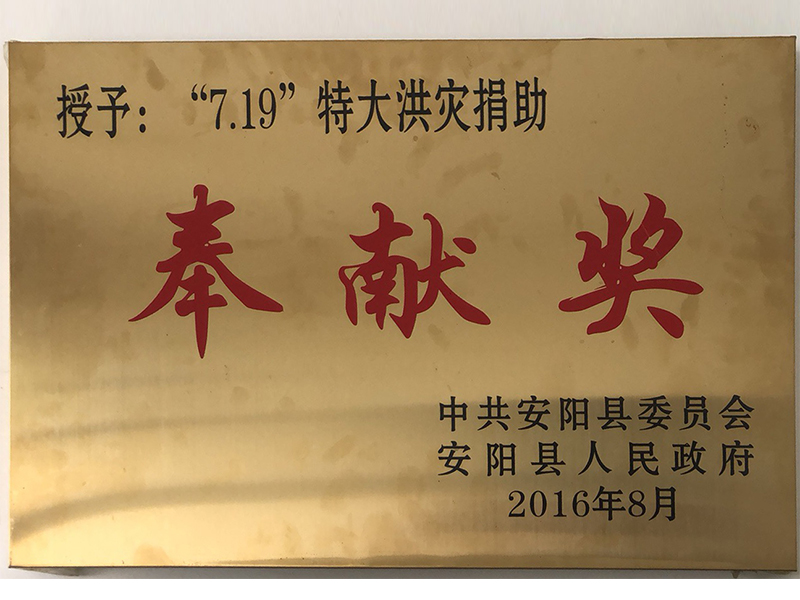 授予：“7.19”特大洪灾捐助
奉献奖
中共安阳县委员会
安阳县人民政府
2016年8月